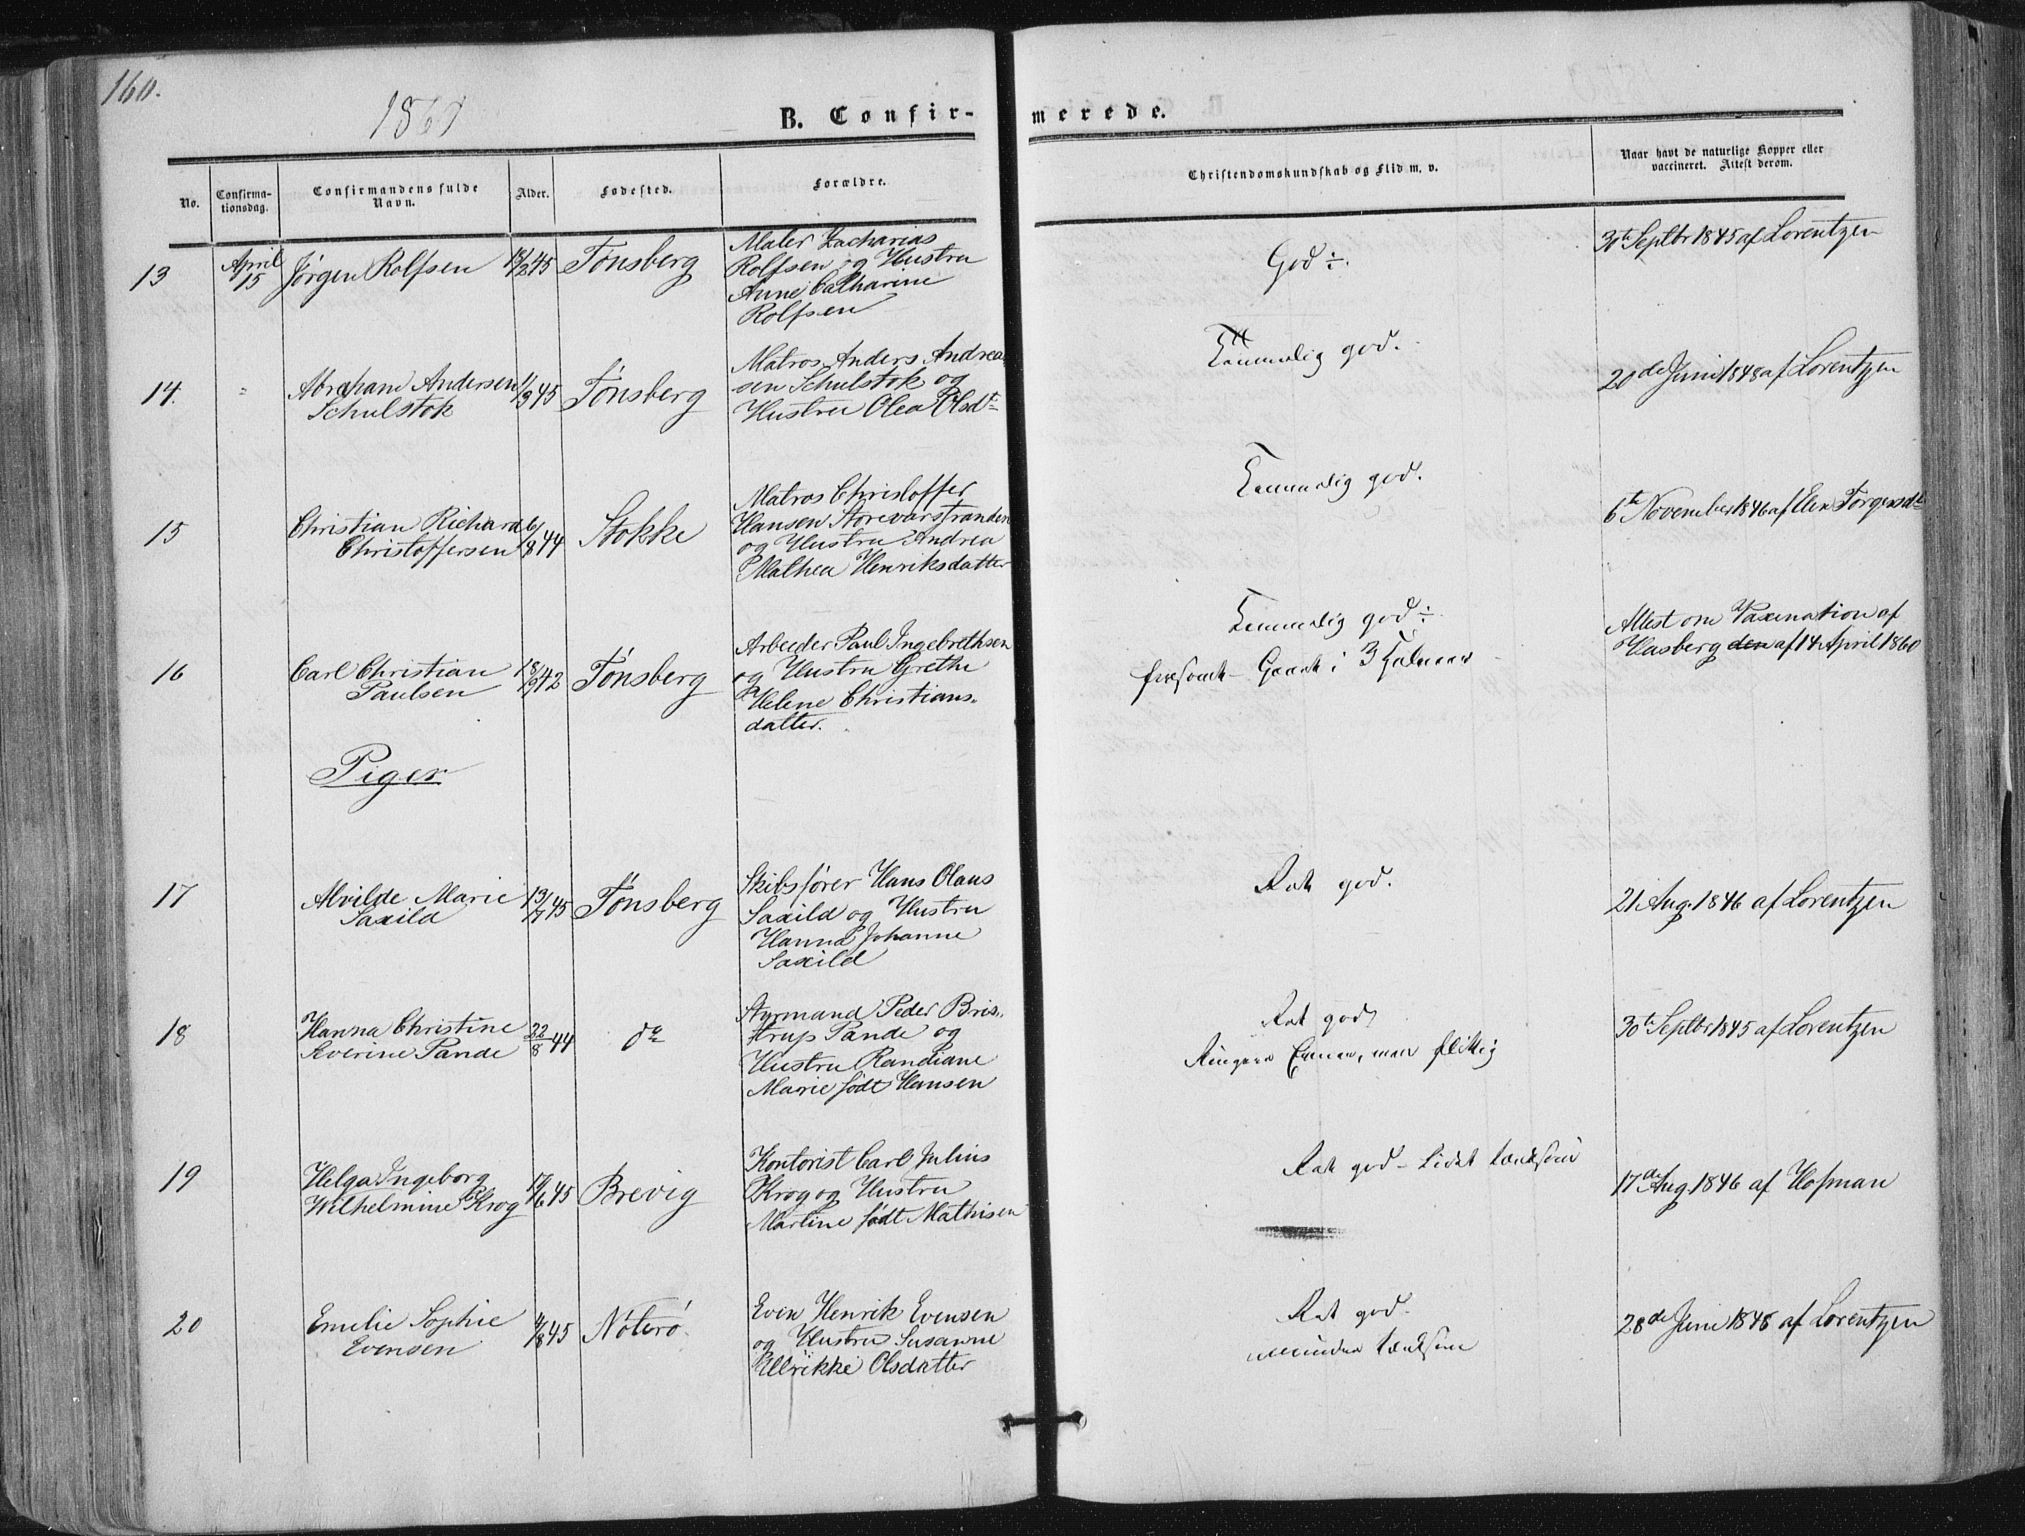 160.
1860
B. Confir-
merede.
No.
Confirma-
tionsdag.
Confirmandens fulde
Navn.
Alder.
Fødested.
Forældre.
Christendomskundskab og Flid m. v.
Naar havt de naturlige Kopper eller
vaccineret. Attest derom.
13
April
15
Jörgen Rolfsen
Tönsberg
Maler Zacharias
Rolfsen og Hustru
Anne Catharine
Rolfsen
God ÷.
30te Septbr 1845 af Lorentzen
14.
Abraham Andersen
Schulstok
Tönsberg
Matros Anders Andrea
sen Schulstok og
Hustru Olea Olsdt
Temmelig god.
20de Juni 1848 af Lorentzen
15
Christian Richard
Christoffersen
6/8 44
Stokke
Matros Christoffer
Hansen Storevarstranden
og Hustru Andrea
Mathea Henriksdatter
Temmelig god.
6te November 1846 af Elen Torgersdt
16
Carl Christian
Paulsen
18/9 42
Tönsberg
Arbeider Paul Ingebrethsen
og Hustru Grethe
Helene Christians-
datter.
Temmelig god ÷
forsömt - Gaaet i 3
Attest om Vaxination af
Hasberg den af 14 April 1860
Piger
17
Alvilde Marie
Saxild
13/7 45
Tönsberg
Skibsförer Hans Olaus
Saxild og Hustru
Hanna Johanne
Saxild
Ret god.
21 Aug. 1846 af Lorentzen
18
Hanna Christine
Severine Pande
22/8 44
do
Styrmand Peder Bris-
trup Pande og
Hustru Randiane
Marie födt Hansen
Ret god
Ringere Evner, men flittig
30te Septbr 1845 af Lorentzen
19
Helga Ingeborg
Wilhelmine Krog
17/6 45
Brevig
Kontorist Carl Julius
Krog og Hustru
Martine födt Mathisen
Ret god - Lidet tænksom
17de Aug. 1846 af Hofman
20
Emelie Sophie
Evensen
4/8 45
Nöterö.
Even Henrik Evensen
og Hustru Susanne
Ullrikke Olsdatter
Ret god.
mindre tænksom
28de Juni 1848 af Lorentzen